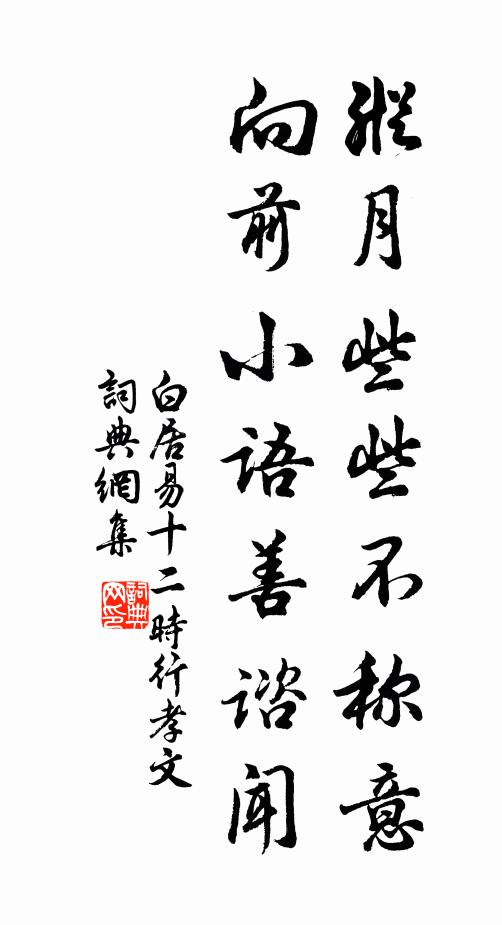 縱月些些不称意
向前小語善諮聞
白居易十二時行孝文
詞典網集
詞典
网印